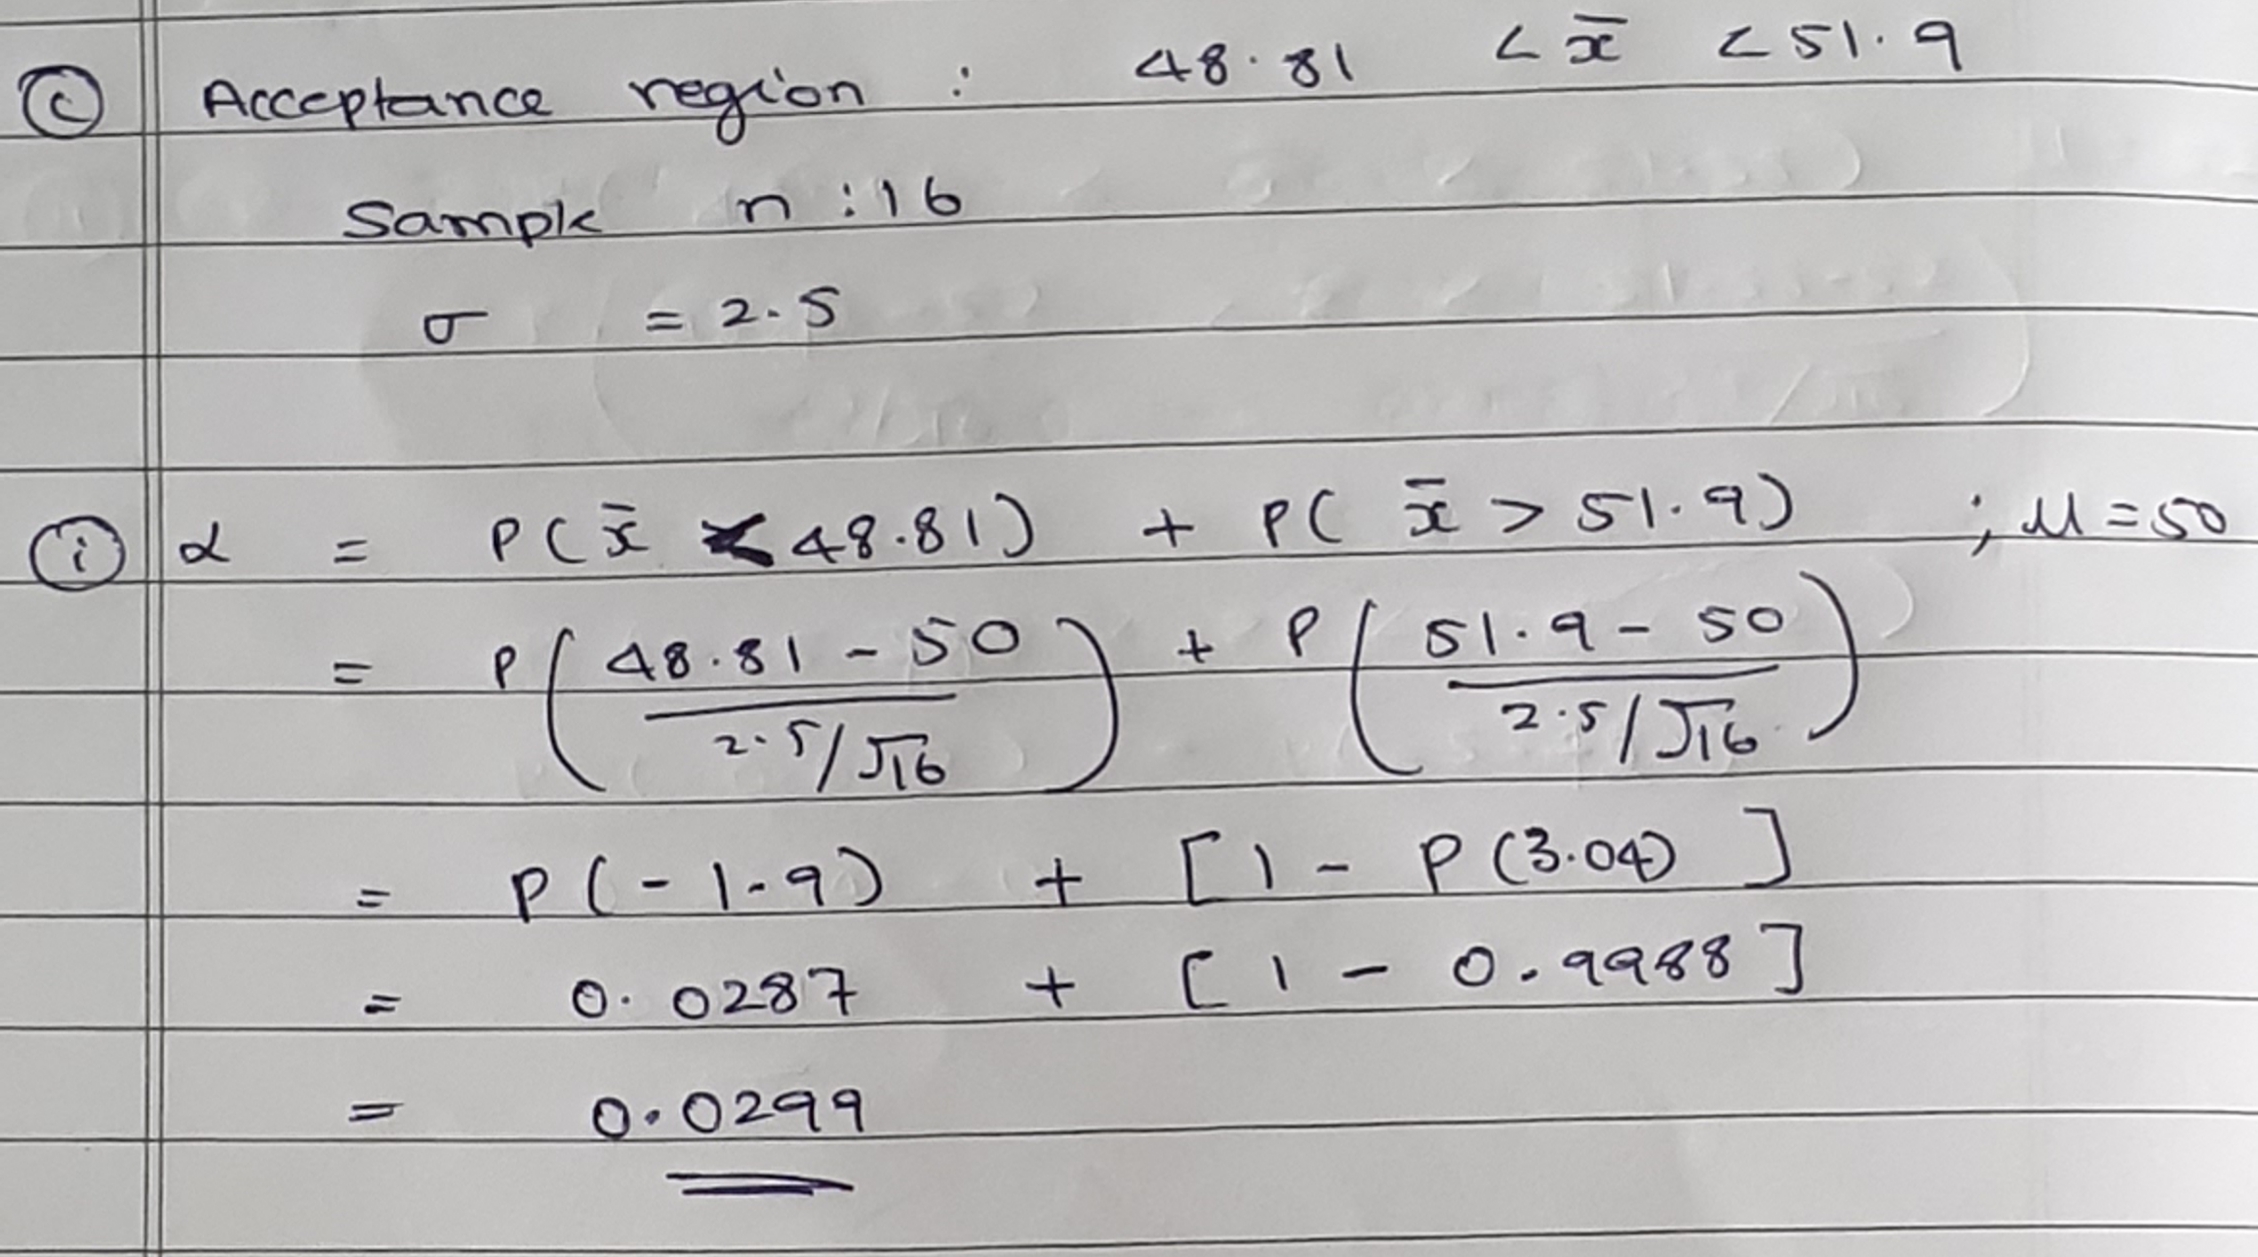 (c) Acceptance region : 48.81 < x̄ < 51.9
Sample n : 16
σ = 2.5
(i) α = P(x̄ < 48.81) + P( x̄ > 51.9) ; μ = 50
= P( (48.81 - 50) / (2.5/√16) ) + P( (51.9 - 50) / (2.5/√16) )
= P(-1.9) + [1 - P(3.04) ]
= 0.0287 + [1 - 0.9988]
= 0.0299